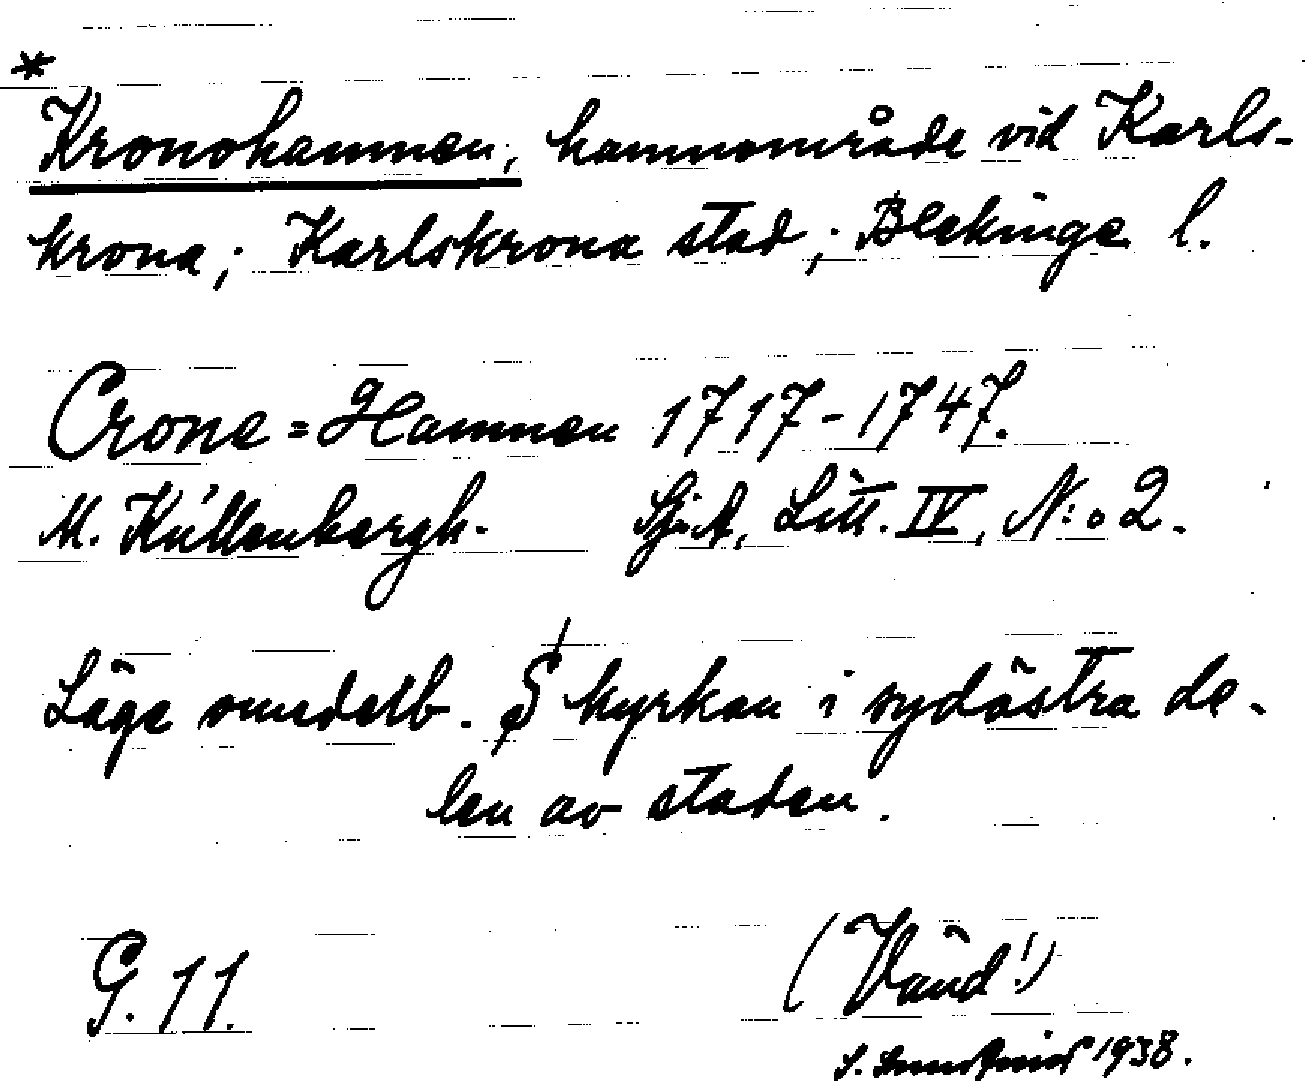 *
Kronohamnen, hamnområde vid Karls-
krona; Karlskrona stad; Blekinge l.
Crone=Hamnen 1717-1747.
M. Küllenbergh. Sj.A, Litt. IV, N:o 2.
Läge omedelb. S kyrkan i sydöstra de-
len av staden.
G. 11.
(Vänd!)
S. 1938.